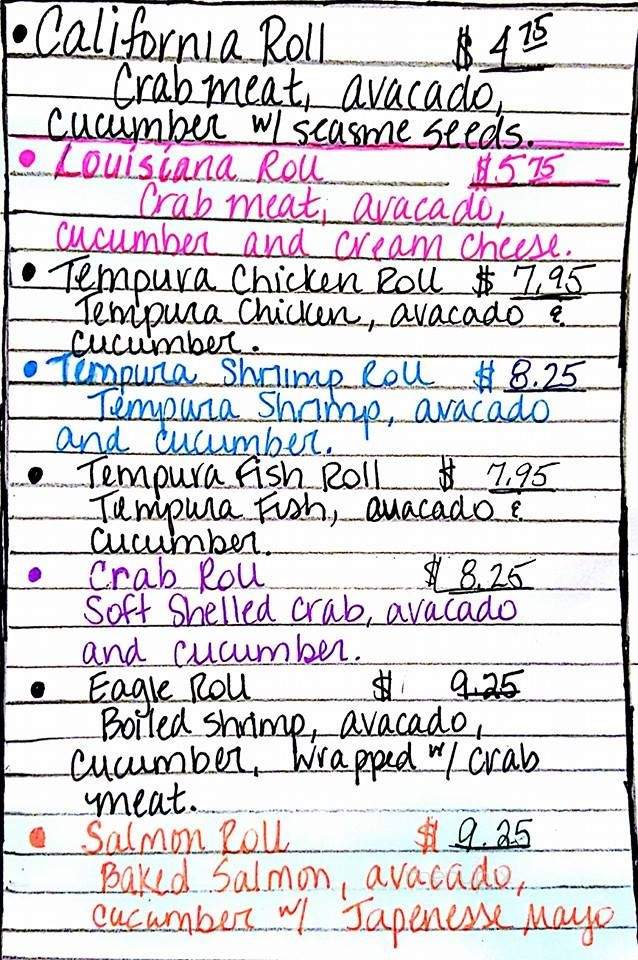 • California Roll $ 4.75
Crab meat, avacado,
cucumber w/ seasme seeds.
• Louisiana Roll $5.75
Crab meat, avacado,
cucumber and cream cheese.
• Tempura Chicken Roll $ 7.95
Tempura Chicken, avacado &
cucumber.
• Tempura Shrimp Roll $ 8.25
Tempura Shrimp, avacado
and cucumber.
• Tempura Fish Roll $ 7.95
Tempura Fish, avacado &
cucumber.
• Crab Roll $ 8.25
Soft Shelled crab, avacado
and cucumber.
• Eagle Roll $ 9.25
Boiled shrimp, avacado,
cucumber, wrapped w/ crab
meat.
• Salmon Roll $ 9.25
Baked Salmon, avacado,
cucumber w/ Japenesse Mayo